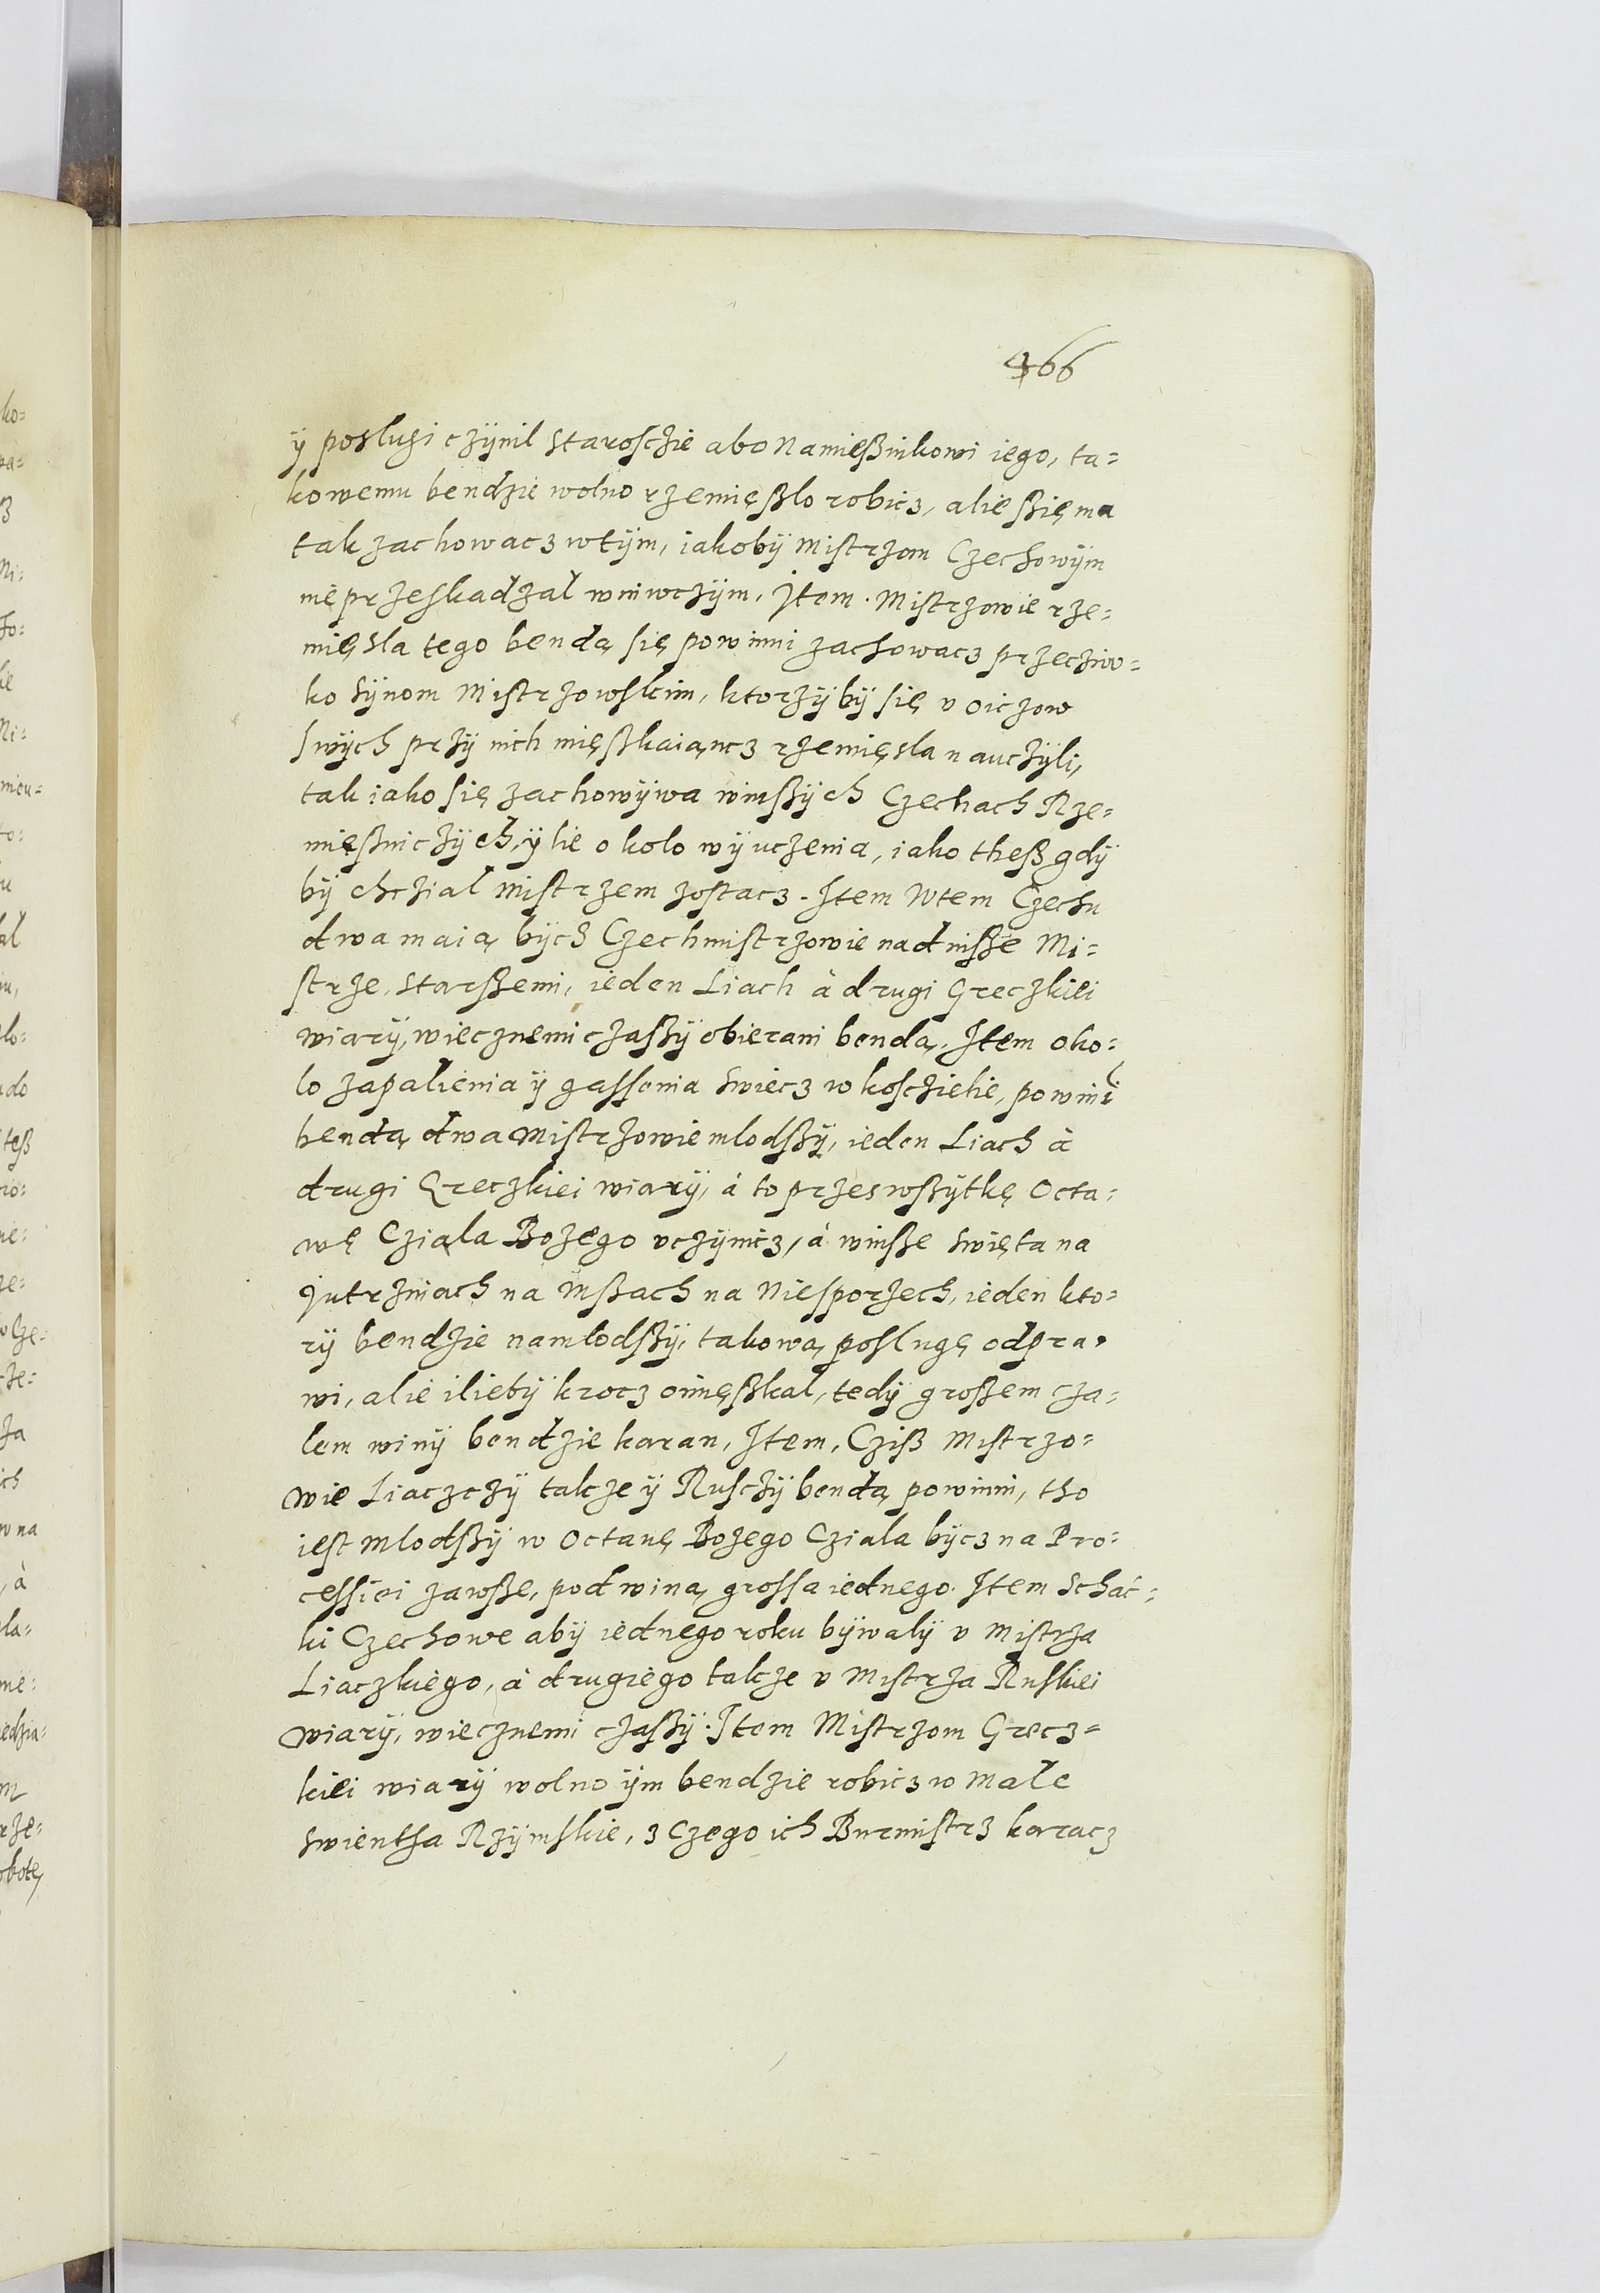 466
ÿ poslugi czÿnil staroscżie abo Namięßnikowi iego, ta=
kowemu bendzie wolno rzemięßlo robicz, alie ßię ma
tak zachowacz wtÿm, iakobÿ Mistrzom Czechowÿm
nie przeskadzal wniwczÿm. Item. Mistrzowie rze=
mięsla tego bendą się powinni zachowacz przecziw=
ko Sÿnom Mistrzowskim, ktorzÿ bÿ się v oiczow
swÿch przÿ nich mięßkaiąncz rzemięsla nauczÿli,
tak iako się zachowÿwa winßÿch Czechach Rze=
mięßniczÿch, ÿ lie okolo wÿuczenia, iako theß gdÿ
bÿ chczial Mistrzem zostacz. Item Wtem Czechu
dwa maią bÿcz Czechmistrzowie nad insße Mi=
strze, starßemi, ieden Liach à drugi Greczkiei
wiarÿ, wiecznemi czaßÿ obierani bendą. Item oko=
lo zapalienia ÿ gassenia swiecz w koscziehie, powinni
bendą dwa Mistrzowie mlodßÿ, ieden Liach à
drugi Greczkiei wiarÿ, à to przes wßÿtkę Octa=
wę Cziala Bożego vczÿnicz, à winße swięta na
Jutrzniach na Mßach na Niesporzech, ieden kto=
rÿ bendzie namlodßÿ, takową poslugę odpra=
wi, alie iliebÿ krocz omięßkal, tedÿ großem cza=
lem winÿ bendzie karan, Item, Cziß Mistrzo=
wie Liaczczÿ takze ÿ Rusczÿ bendą powinni, tho
iest mlodßÿ w Octawę Bożego Cziala bÿcz na Pro=
cessiei zawße, pod winą grossa iednego. Item Schac=
ki Czechowe abÿ iednego roku bÿwalÿ v Mistrza
Liaczkiego, à drugiego takze v Mistrza Ruskiei
wiarÿ, wiecznemi czaßÿ. Item Mistrzom Grecz=
kiei wiarÿ wolno ÿm bendzie robicz w Male
swientha Rzÿmskie, z Czego ich Burmistrz karacz